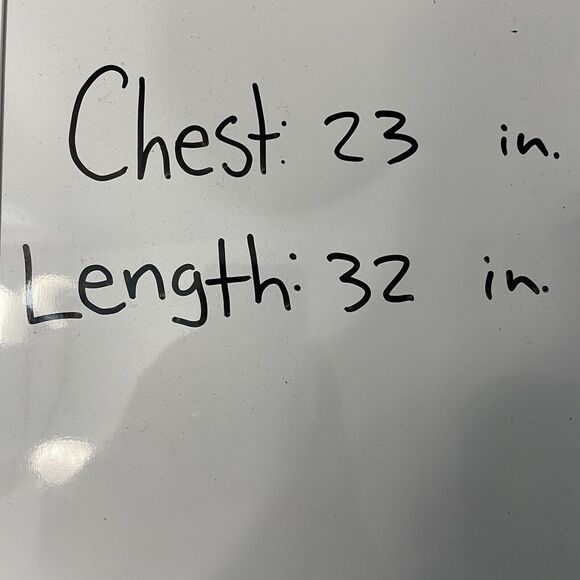 Chest: 23 in.
Length: 32 in.